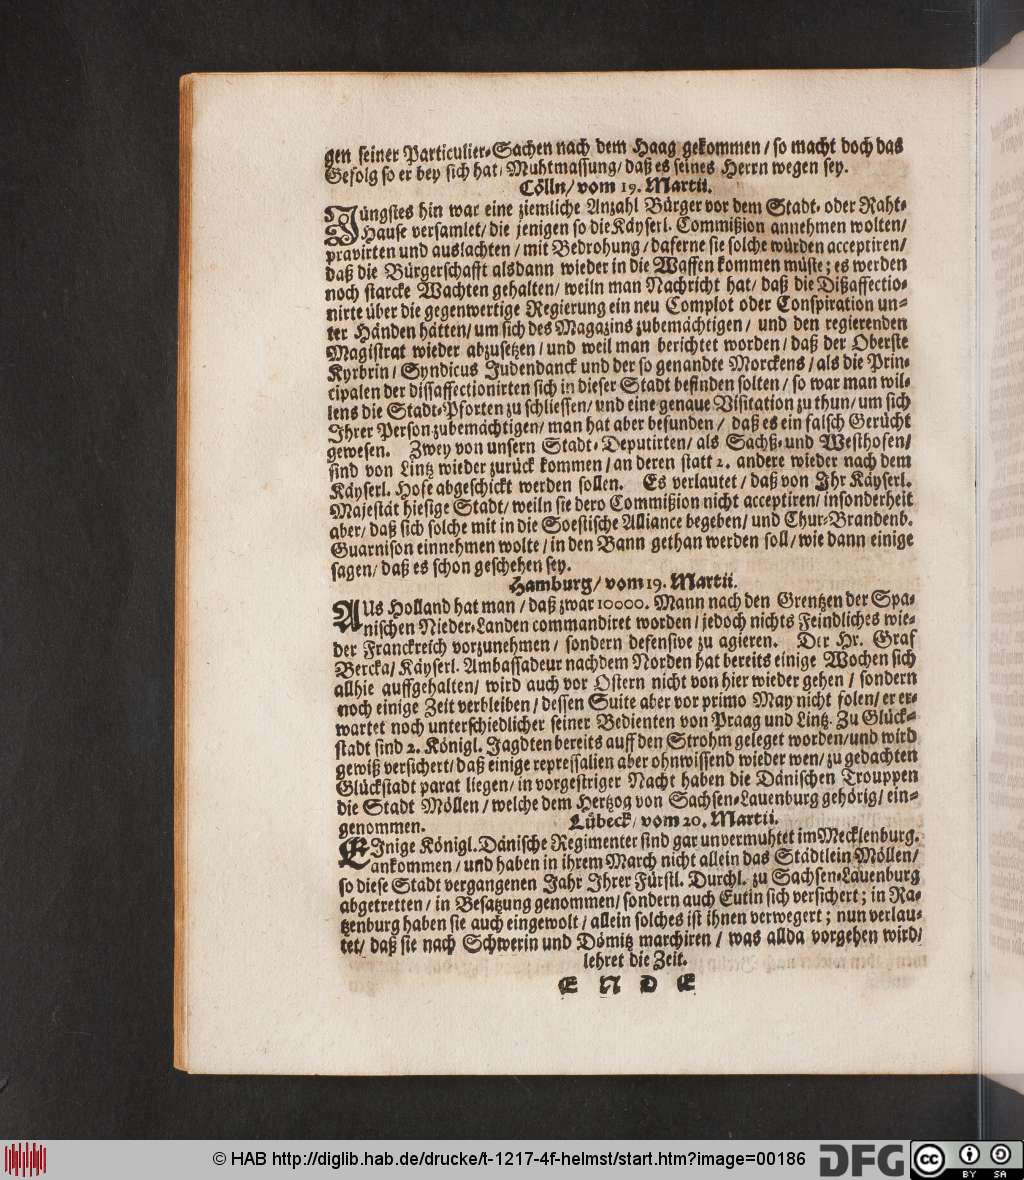 gen seiner Particulier-Sachen nach dem Haag gekommen / so macht doch das
Gefolg so er bey sich hat / Muhtmassung / daß es seines Herrn wegen sey.
Cölln / vom 19. Martii.
JÜngstes hin war eine ziemliche Anzahl Bürger vor dem Stadt- oder Raht-
Hause versamlet / die jenigen so die Käyserl. Commißion annehmen wolten /
pravirten und auslachten / mit Bedrohung / daferne sie solche würden acceptiren /
daß die Bürgerschafft alsdann wieder in die Waffen kommen müste ; es werden
noch starcke Wachten gehalten / weiln man Nachricht hat / daß die Dißaffectio-
nirte über die gegenwertige Regierung ein neu Complot oder Conspiration un-
ter Händen hätten / um sich des Magazins zubemächtigen / und den regierenden
Magistrat wieder abzusetzen / und weil man berichtet worden / daß der Oberste
Kyrbrin / Syndicus Judendanck und der so genandte Morckens / als die Prin-
cipalen der dissaffectionirten sich in dieser Stadt befinden solten / so war man wil-
lens die Stadt-Pforten zu schliessen / und eine genaue Visitation zu thun / um sich
Ihrer Person zubemächtigen / man hat aber befunden / daß es ein falsch Gerücht
gewesen. Zwey von unsern Stadt-Deputirten / als Sachß- und Westhofen /
sind von Lintz wieder zurück kommen / an deren statt 2. andere wieder nach dem
Käyserl. Hofe abgeschickt werden sollen. Es verlautet / daß von Ihr Käyserl.
Majestät hiesige Stadt / weiln sie dero Commißion nicht acceptiren / insonderheit
aber / daß sich solche mit in die Soestische Alliance begeben / und Chur-Brandenb.
Guarnison einnehmen wolte / in den Bann gethan werden soll / wie dann einige
sagen / daß es schon geschehen sey.
Hamburg / vom 19. Martii.
AUs Holland hat man / daß zwar 10000. Mann nach den Grentzen der Spa-
nischen Nieder-Landen commandiret worden / jedoch nichts Feindliches wie-
der Franckreich vorzunehmen / sondern defensive zu agieren. Der Hr. Graf
Bercka / Käyserl. Ambassadeur nachdem Norden hat bereits einige Wochen sich
allhie auffgehalten / wird auch vor Ostern nicht von hier wieder gehen / sondern
noch einige Zeit verbleiben / dessen Suite aber vor primo May nicht folen / er er-
wartet noch unterschiedlicher seiner Bedienten von Praag und Lintz. Zu Glück-
stadt sind 2. Königl. Jagdten bereits auff den Strohm geleget worden / und wird
gewiß versichert / daß einige repressalien aber ohnwissend wieder wen / zu gedachten
Glückstadt parat liegen / in vorgestriger Nacht haben die Dänischen Trouppen
die Stadt Möllen / welche dem Hertzog von Sachsen-Lauenburg gehörig / ein-
genommen. Lübeck / vom 20. Martii.
EInige Königl. Dänische Regimenter sind gar unvermuhtet im Mecklenburg.
ankommen / und haben in ihrem March nicht allein das Städtlein Möllen /
so diese Stadt vergangenen Jahr Ihrer Fürstl. Durchl. zu Sachsen-Lauenburg
abgetretten / in Besatzung genommen / sondern auch Eutin sich versichert ; in Ra-
tzenburg haben sie auch eingewolt / allein solches ist ihnen verwegert ; nun verlau-
tet / daß sie nach Schwerin und Dömitz marchiren / was allda vorgehen wird /
lehret die Zeit.
E N D E
© HAB http://diglib.hab.de/drucke/t-1217-4f-helmst/start.htm?image=00186
DFG
cc BY SA